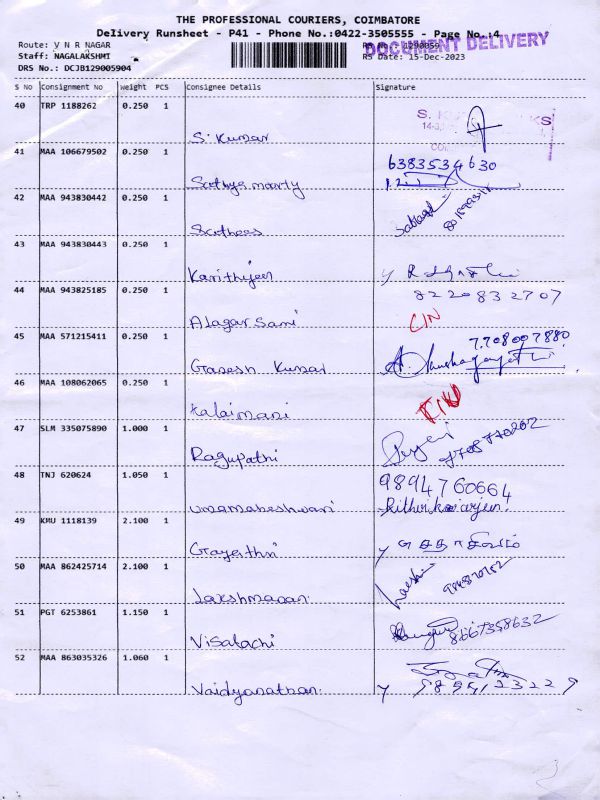 THE PROFESSIONAL COURIERS, COIMBATORE
Delivery Runsheet - P41 - Phone No.:0422-3505555 - Page No.:4
Route: V N R NAGAR
RS No.: 1290859
DOCUMENT DELIVERY
Staff: NAGALAKSHMI
RS Date: 15-Dec-2023
DRS No.: DCJB129005904
S No Consignment No Weight PCS Consignee Details Signature
40 TRP 1188262 0.250 1
S. Kumar
41 MAA 106679502 0.250 1 6383534630
Sathya moorty
42 MAA 943830442 0.250 1
Sathees
43 MAA 943830443 0.250 1
Kanithijen
44 MAA 943825185 0.250 1 8220832707
Alagar Sami C/N
45 MAA 571215411 0.250 1 7708007880
Ganesh Kumar
46 MAA 108062065 0.250 1
Kalaimani
47 SLM 335075890 1.000 1
Ragupathi
48 TNJ 620624 1.050 1 9894760664
Umamaheshwari
49 KMU 1118139 2.100 1
Gayathri
50 MAA 862425714 2.100 1
Lakshmanan
51 PGT 6253861 1.150 1 8667358632
Visalachi
52 MAA 863035326 1.060 1
Vaidyanathan